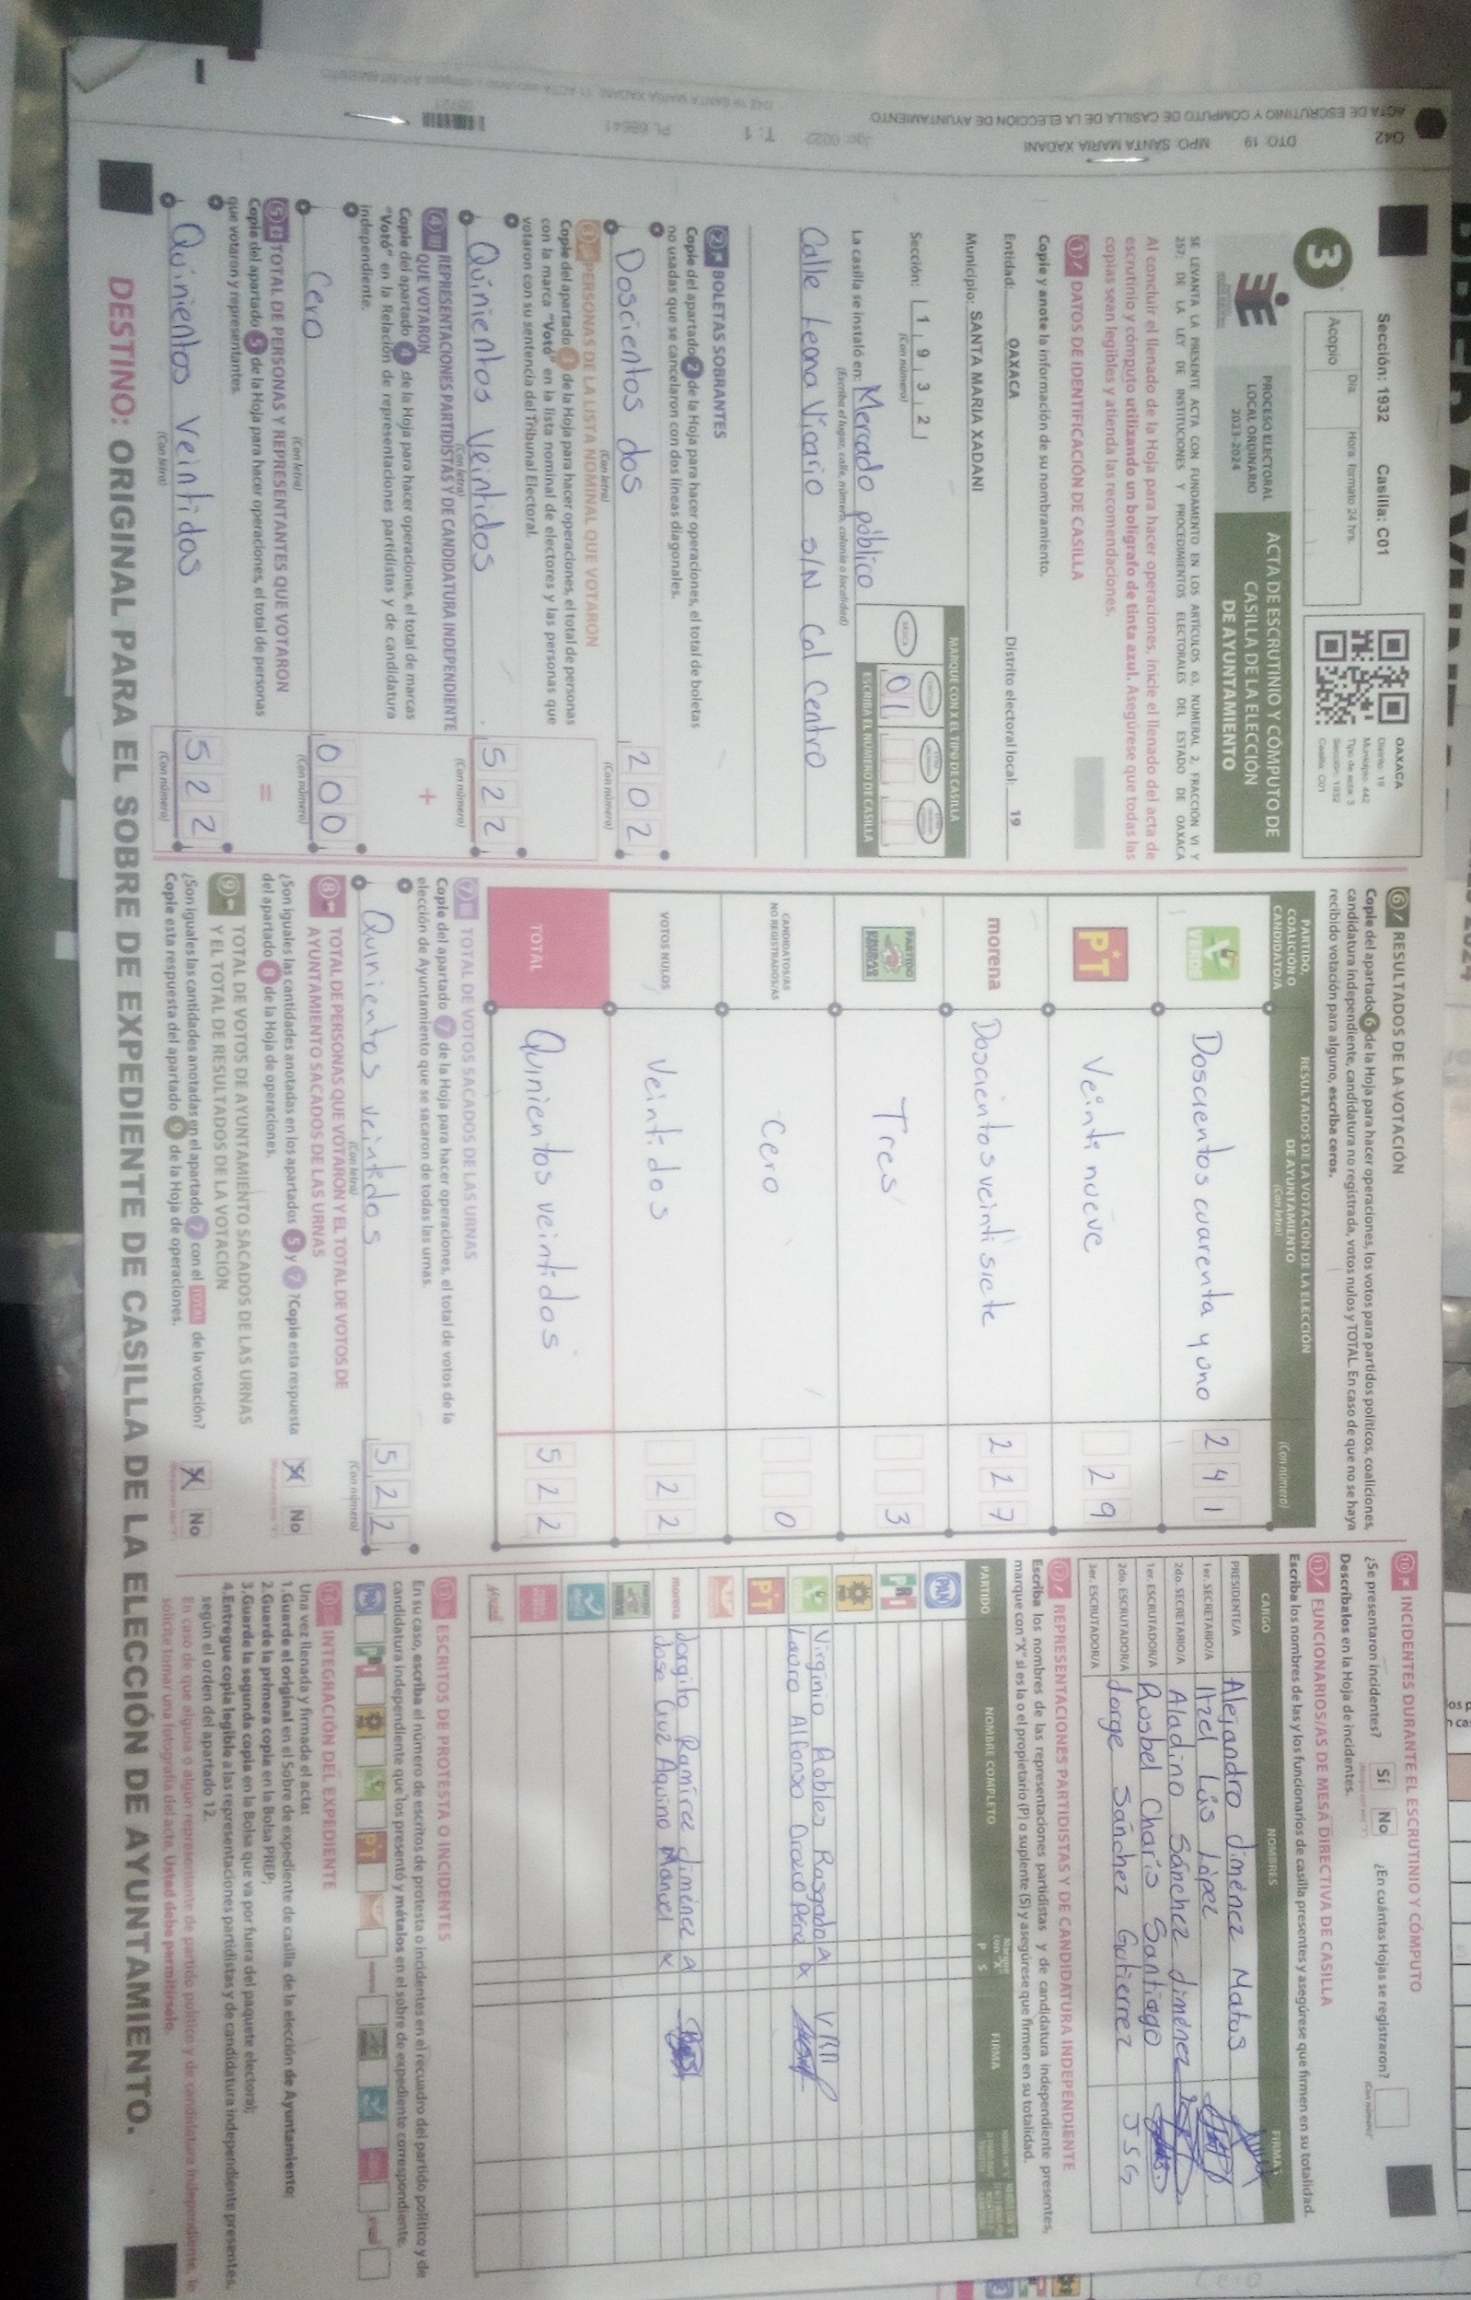 Sección: 1932 Casilla: C01
3
Día Hora formato 24 hrs.
Acopio
OAXACA
Distrito: 19
Municipio: 442
Tipo de acta: 3
Sección: 1932
Casilla: C01
PROCESO ELECTORAL
LOCAL ORDINARIO
2023-2024
ACTA DE ESCRUTINIO Y CÓMPUTO DE
CASILLA DE LA ELECCIÓN
DE AYUNTAMIENTO
SE LEVANTA LA PRESENTE ACTA CON FUNDAMENTO EN LOS ARTÍCULOS 63, NUMERAL 2, FRACCIÓN VI Y
257; DE LA LEY DE INSTITUCIONES Y PROCEDIMIENTOS ELECTORALES DEL ESTADO DE OAXACA
Al concluir el llenado de la Hoja para hacer operaciones, inicie el llenado del acta de
escrutinio y cómputo utilizando un bolígrafo de tinta azul. Asegúrese que todas las
copias sean legibles y atienda las recomendaciones.
1 DATOS DE IDENTIFICACIÓN DE CASILLA
Copie y anote la información de su nombramiento.
Entidad: OAXACA Distrito electoral local: 19
Municipio: SANTA MARIA XADANI
Sección: 1 9 3 2
(Con número)
MARQUE CON X EL TIPO DE CASILLA
01
ESCRIBA EL NÚMERO DE CASILLA
La casilla se instaló en: Mercado público
(Escriba el lugar, calle, número, colonia o localidad)
Calle Leona Vicario s/N Col Centro
2 BOLETAS SOBRANTES
Copie del apartado 2 de la Hoja para hacer operaciones, el total de boletas
no usadas que se cancelaron con dos líneas diagonales.
Doscientos dos 202
(Con letra) (Con número)
3 PERSONAS DE LA LISTA NOMINAL QUE VOTARON
Copie del apartado 3 de la Hoja para hacer operaciones, el total de personas
con la marca "Votó" en la lista nominal de electores y las personas que
votaron con su sentencia del Tribunal Electoral.
Quinientos Veintidos 522
(Con letra) (Con número)
4 REPRESENTACIONES PARTIDISTAS Y DE CANDIDATURA INDEPENDIENTE
QUE VOTARON
Copie del apartado 4 de la Hoja para hacer operaciones, el total de marcas
"Votó" en la Relación de representaciones partidistas y de candidatura
independiente.
Cero 000
(Con letra) (Con número)
5 TOTAL DE PERSONAS Y REPRESENTANTES QUE VOTARON
Copie del apartado 5 de la Hoja para hacer operaciones, el total de personas
que votaron y representantes.
Quinientos Veintidos 522
(Con letra) (Con número)
6 RESULTADOS DE LA VOTACIÓN
Copie del apartado 6 de la Hoja para hacer operaciones, los votos para partidos políticos, coaliciones,
candidatura independiente, candidatura no registrada, votos nulos y TOTAL. En caso de que no se haya
recibido votación para alguno, escriba ceros.
PARTIDO,
COALICIÓN O
CANDIDATO/A
RESULTADOS DE LA VOTACIÓN DE LA ELECCIÓN
DE AYUNTAMIENTO
(Con letra) (Con número)
VERDE Doscientos cuarenta y uno 241
PT Veinti nueve 29
morena Doscientos veinti siete 227
Tres 3
CANDIDATOS/AS
NO REGISTRADOS/AS Cero 0
VOTOS NULOS Veinti dos 22
TOTAL Quinientos veintidos 522
7 TOTAL DE VOTOS SACADOS DE LAS URNAS
Copie del apartado 7 de la Hoja para hacer operaciones, el total de votos de la
elección de Ayuntamiento que se sacaron de todas las urnas.
Quinientos veintidos 522
(Con letra) (Con número)
8 TOTAL DE PERSONAS QUE VOTARON Y EL TOTAL DE VOTOS DE
AYUNTAMIENTO SACADOS DE LAS URNAS
¿Son iguales las cantidades anotadas en los apartados 5 y 7 ? Copie esta respuesta
del apartado 8 de la Hoja de operaciones. X No
9 TOTAL DE VOTOS DE AYUNTAMIENTO SACADOS DE LAS URNAS
Y EL TOTAL DE RESULTADOS DE LA VOTACIÓN
¿Son iguales las cantidades anotadas en el apartado 7 con el TOTAL de la votación?
Copie esta respuesta del apartado 9 de la Hoja de operaciones. X No
10 INCIDENTES DURANTE EL ESCRUTINIO Y CÓMPUTO
¿Se presentaron incidentes? Sí No ¿En cuántas Hojas se registraron?
(Con número)
Descríbalos en la Hoja de incidentes.
11 FUNCIONARIOS/AS DE MESA DIRECTIVA DE CASILLA
Escriba los nombres de las y los funcionarios de casilla presentes y asegúrese que firmen en su totalidad.
CARGO NOMBRES FIRMA
PRESIDENTE/A Alejandro Jiménez Matus
1er. SECRETARIO/A Itzel Lis López
2do. SECRETARIO/A Aladino Sánchez Jiménez
1er. ESCRUTADOR/A Rosbel Charis Santiago
2do. ESCRUTADOR/A Jorge Sánchez Gutierrez JSG
3er. ESCRUTADOR/A
12 REPRESENTACIONES PARTIDISTAS Y DE CANDIDATURA INDEPENDIENTE
Escriba los nombres de las representaciones partidistas y de candidatura independiente presentes,
marque con "X" si es la o el propietario (P) o suplente (S) y asegúrese que firmen en su totalidad.
PARTIDO NOMBRE COMPLETO P S FIRMA
PAN
PRI
Virginio Robles Rasgado
Lauro Alfonso Orozco Pérez
PT
morena Jorgito Ramírez Jiménez
Jose Cruz Aquino Manuel
13 ESCRITOS DE PROTESTA O INCIDENTES
En su caso, escriba el número de escritos de protesta o incidentes en el recuadro del partido político y de
candidatura independiente que los presentó y métalos en el sobre de expediente correspondiente.
14 INTEGRACIÓN DEL EXPEDIENTE
Una vez llenada y firmada el acta:
1.Guarde el original en el Sobre de expediente de casilla de la elección de Ayuntamiento;
2.Guarde la primera copia en la Bolsa PREP;
3.Guarde la segunda copia en la Bolsa que va por fuera del paquete electoral;
4.Entregue copia legible a las representaciones partidistas y de candidatura independiente presentes,
según el orden del apartado 12.
En caso de que alguna o algún representante de partido político y de candidatura independiente, le
solicite tomar una fotografía del acta, Usted debe permitírselo.
DESTINO: ORIGINAL PARA EL SOBRE DE EXPEDIENTE DE CASILLA DE LA ELECCIÓN DE AYUNTAMIENTO.
ACTA DE ESCRUTINIO Y CÓMPUTO DE CASILLA DE LA ELECCIÓN DE AYUNTAMIENTO
DTO. 19 MPO. SANTA MARIA XADANI
T: 1